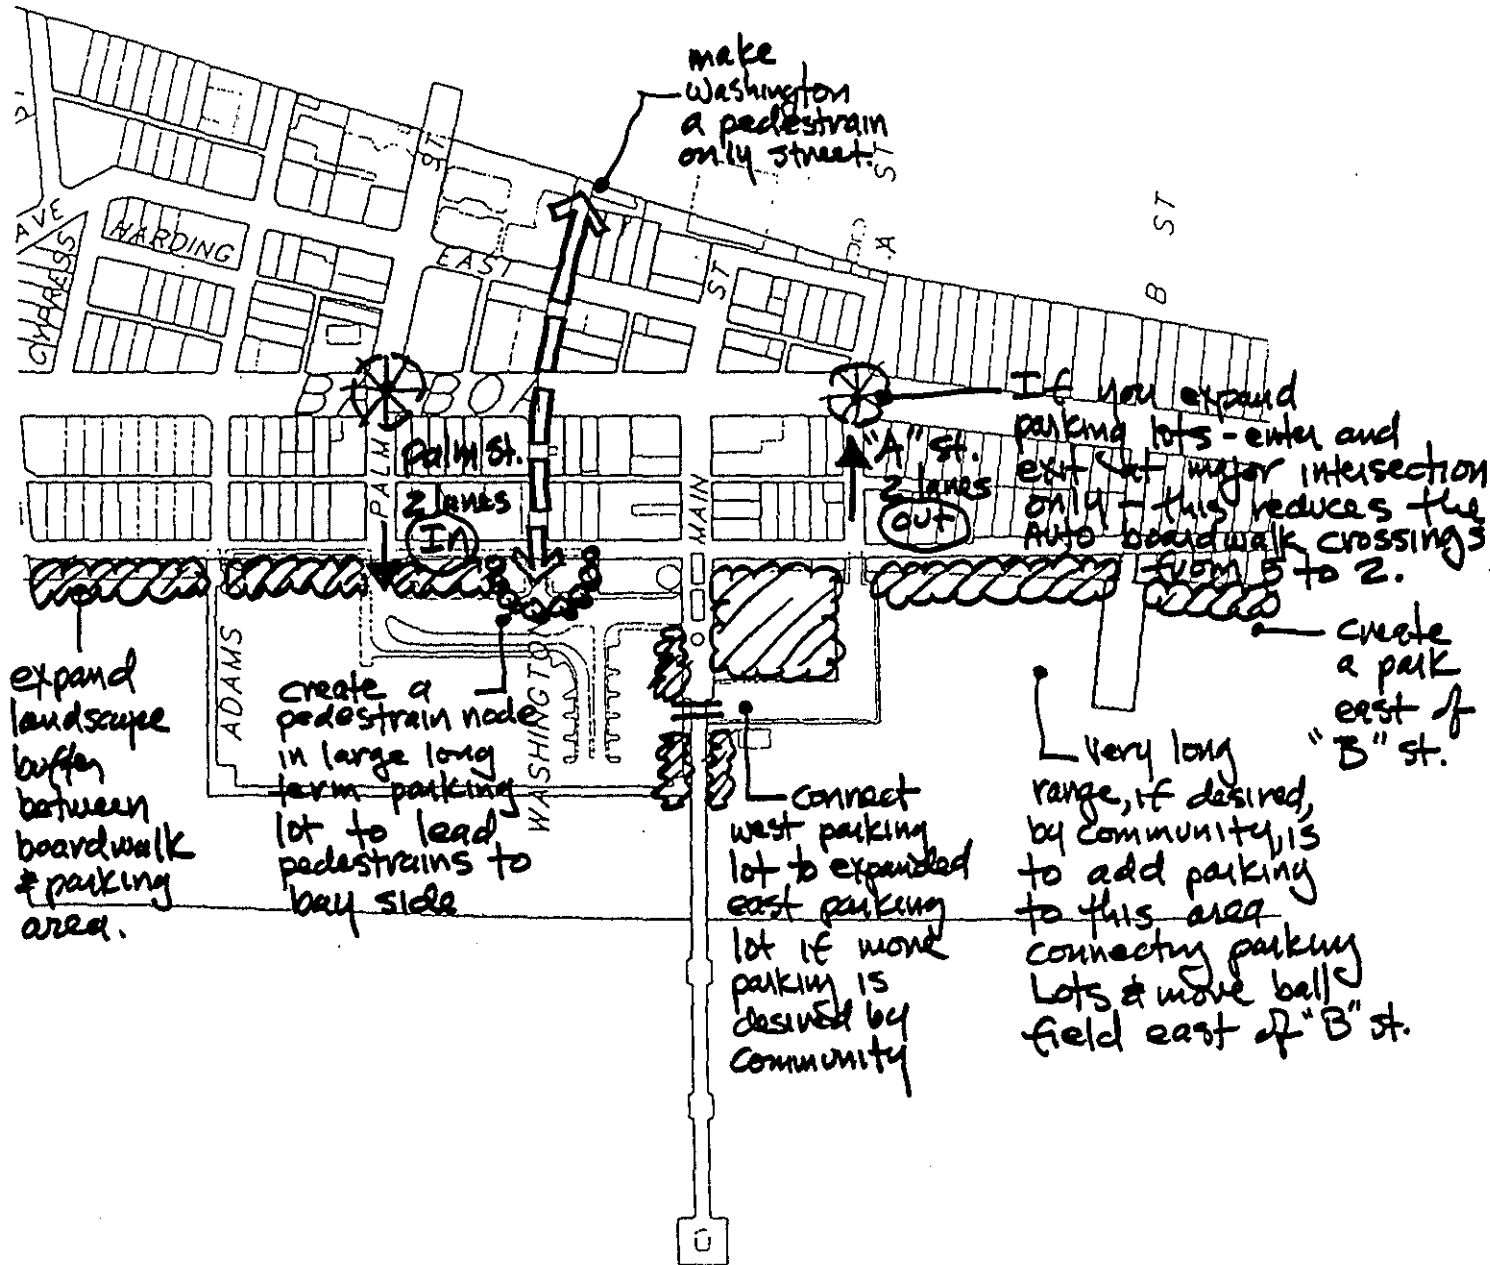 make
washington
a pedestrain
only street.
ST
A ST
B ST
AVE
HARDING
CYPRESS
EAST
ST
BALBOA
PALM
Palm st.
2 lanes
In
MAIN
"A" st.
2 lanes
out
If you expand
parking lots - enter and
exit at major intersection
only - this reduces the
Auto boardwalk crossings
from 5 to 2.
expand
landscape
buffer
between
boardwalk
& parking
area.
ADAMS
create a
pedestrain node
in large long
term parking
lot to lead
pedestrains to
bay side
WASHINGTON
connect
west parking
lot to expanded
east parking
lot if more
parking is
desired by
community
very long
range, if desired,
by community, is
to add parking
to this area
connecting parking
Lots & move ball
field east of "B" st.
create
a park
east of
"B" st.